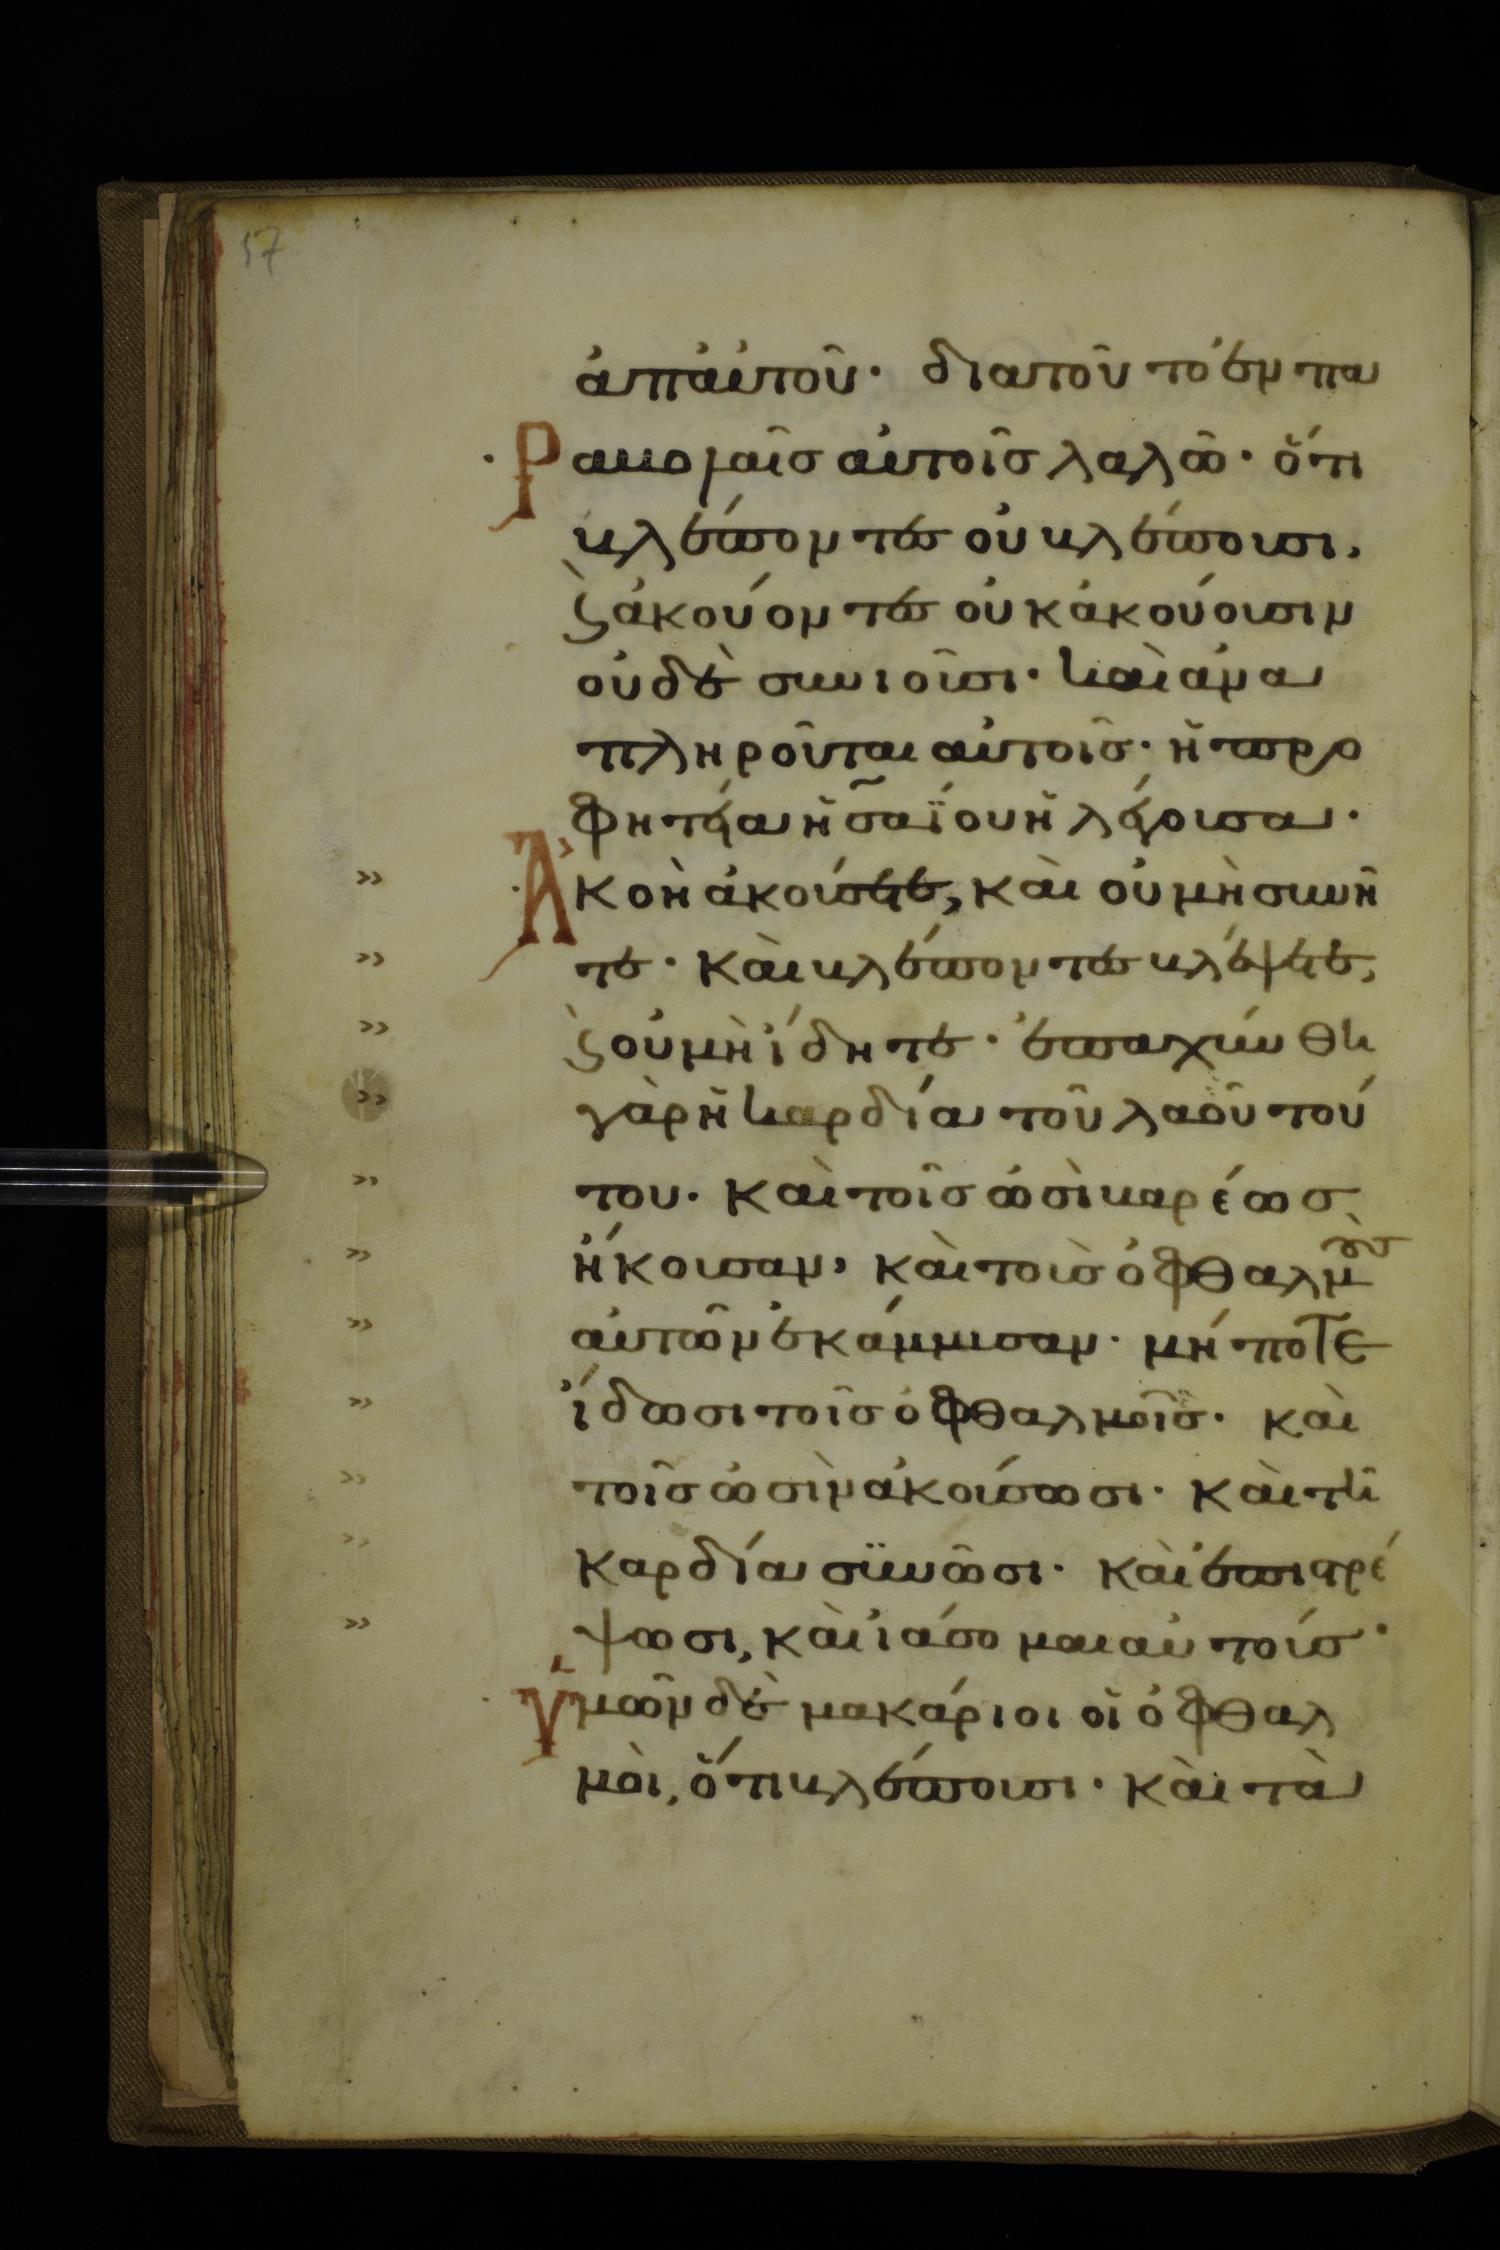 57
ἀπ' ἀυτοῦ· διατοῦτο ἐν πα
ραβολαῖς αὐτοῖς λαλῶ· ὅτι
βλέποντες οὐ βλέπουσι,
ϛ ἀκούοντες οὐκ ἀκούουσιν
οὐδὲ συνιοῦσι· καὶ ἀνα
πληροῦται αὐτοῖς· ἡ προ
φητεία ἡσαΐου ἡ λέγουσα·
» Ἀκοῇ ἀκούσετε, καὶ οὐ μὴ συνῆ
» τε· καὶ βλέποντες βλέψετε,
» ϛ οὐ μὴ ἴδητε· ἐπαχύνθη
» γὰρ ἡ καρδία τοῦ λαοῦ τού
» του· καὶ τοῖς ὠσὶ βαρέως
» ἤκουσαν, καὶ τοὺς ὀφθαλμοὺς
» αὐτῶν ἐκάμμυσαν· μήποτε
» ἴδωσι τοῖς ὀφθαλμοῖς· καὶ
» τοῖς ὠσὶν ἀκούσωσι· καὶ τῆ
» καρδία συνῶσι· καὶ ἐπιστρέ
» ψωσι, καὶ ἰάσομαι αὐτούς·
Ὑμῶν δὲ μακάριοι οἱ ὀφθαλ
μοὶ, ὅτι βλέπουσι· καὶ τὰ